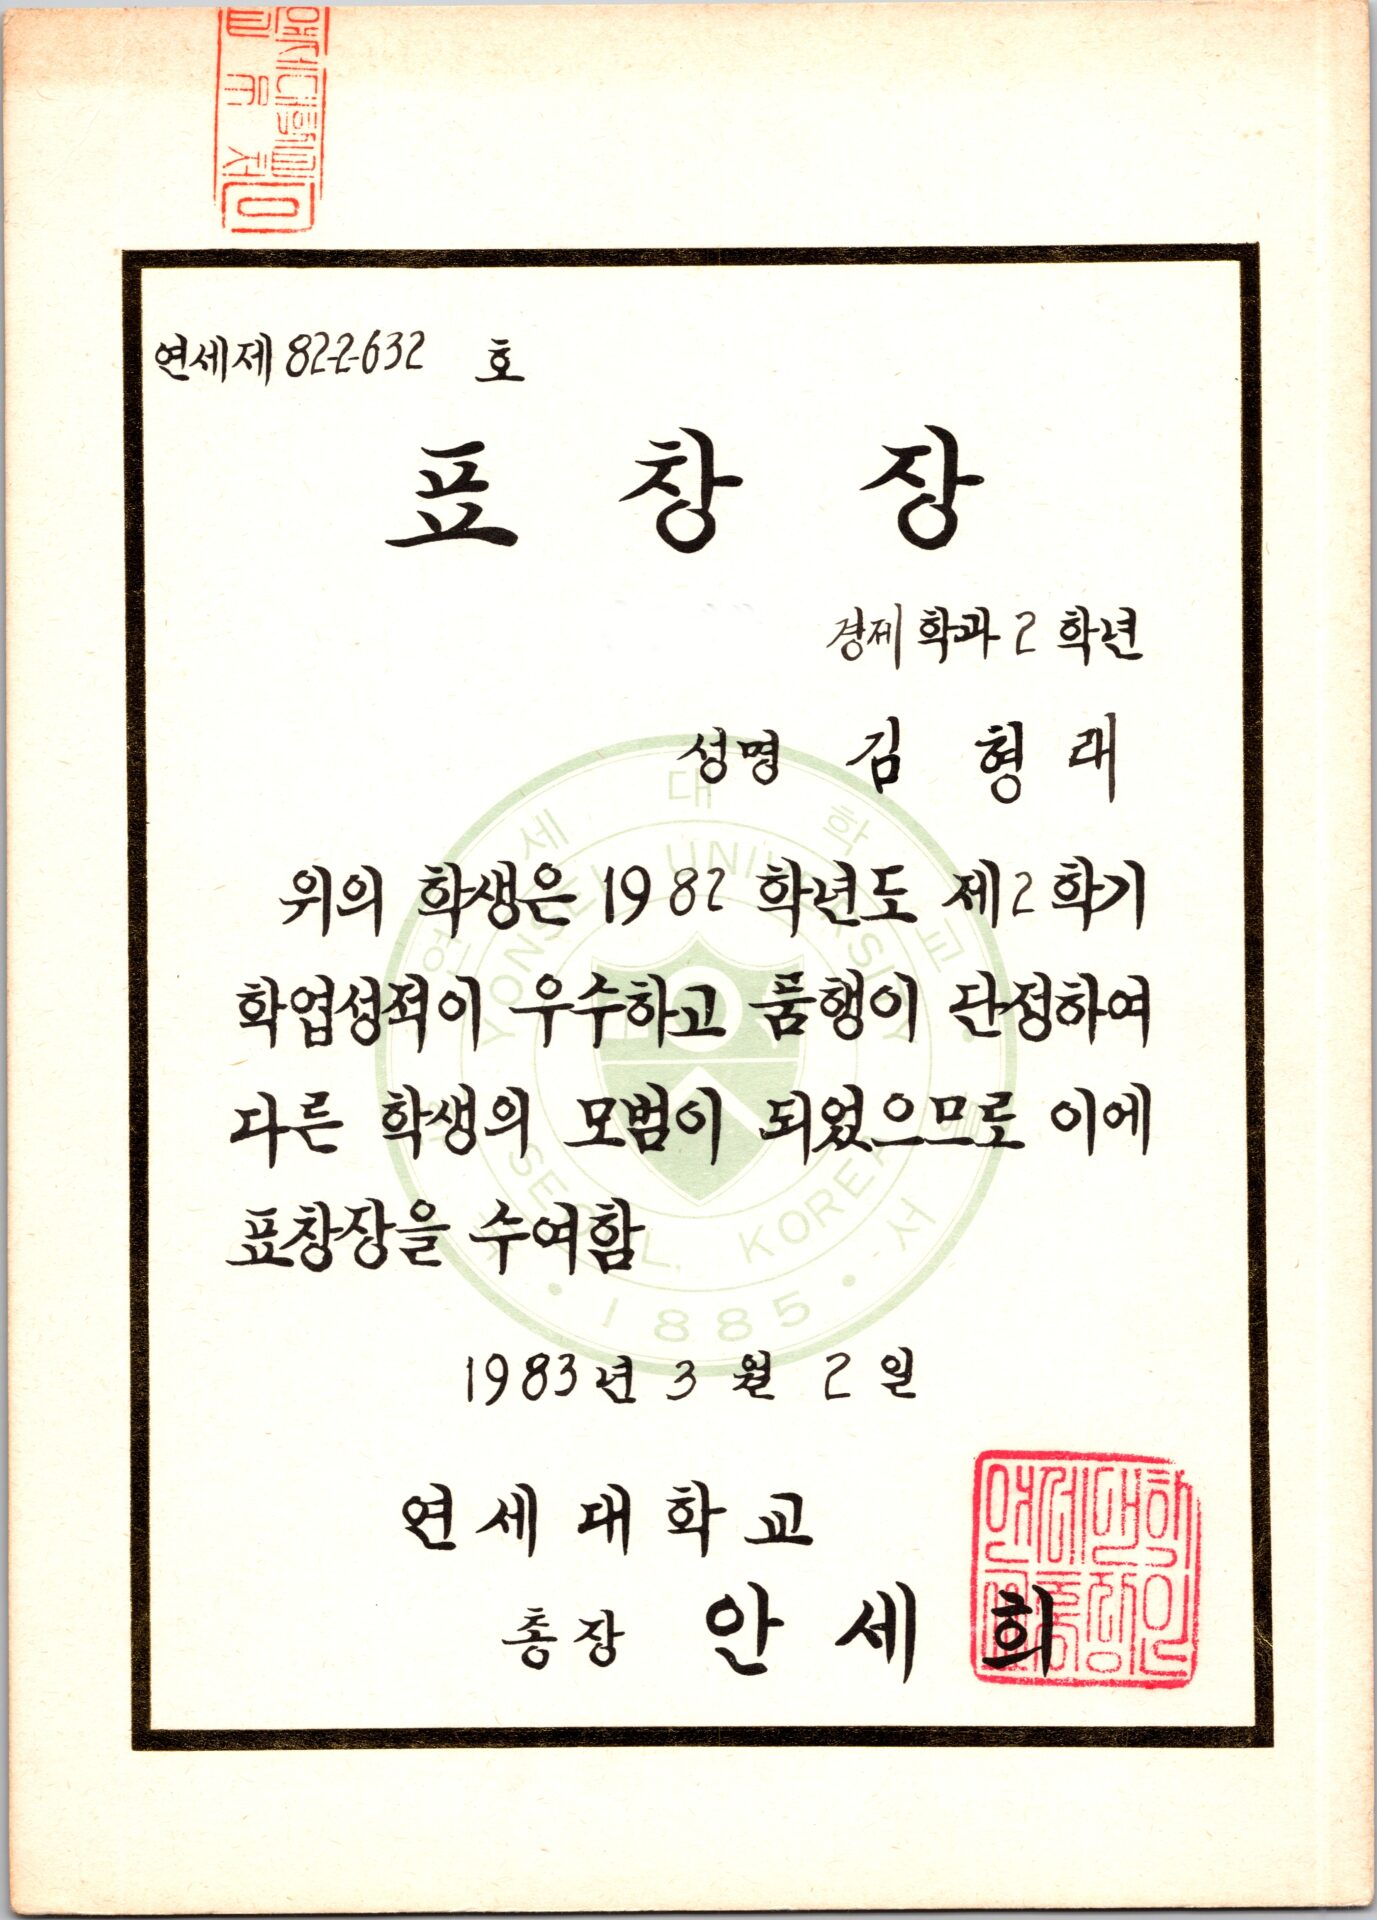 연세제 82-2-632 호
표 창 장
경제 학과 2 학년
성명 김 형 래
위의 학생은 1982 학년도 제2학기
학업성적이 우수하고 품행이 단정하여
다른 학생의 모범이 되었으므로 이에
표창장을 수여함
1983년 3 월 2 일
연 세 대 학 교
총장 안 세 희
연세대학
교총장인
연세대학교
YONSEI UNIVERSITY
SEOUL. KOREA
·1885·